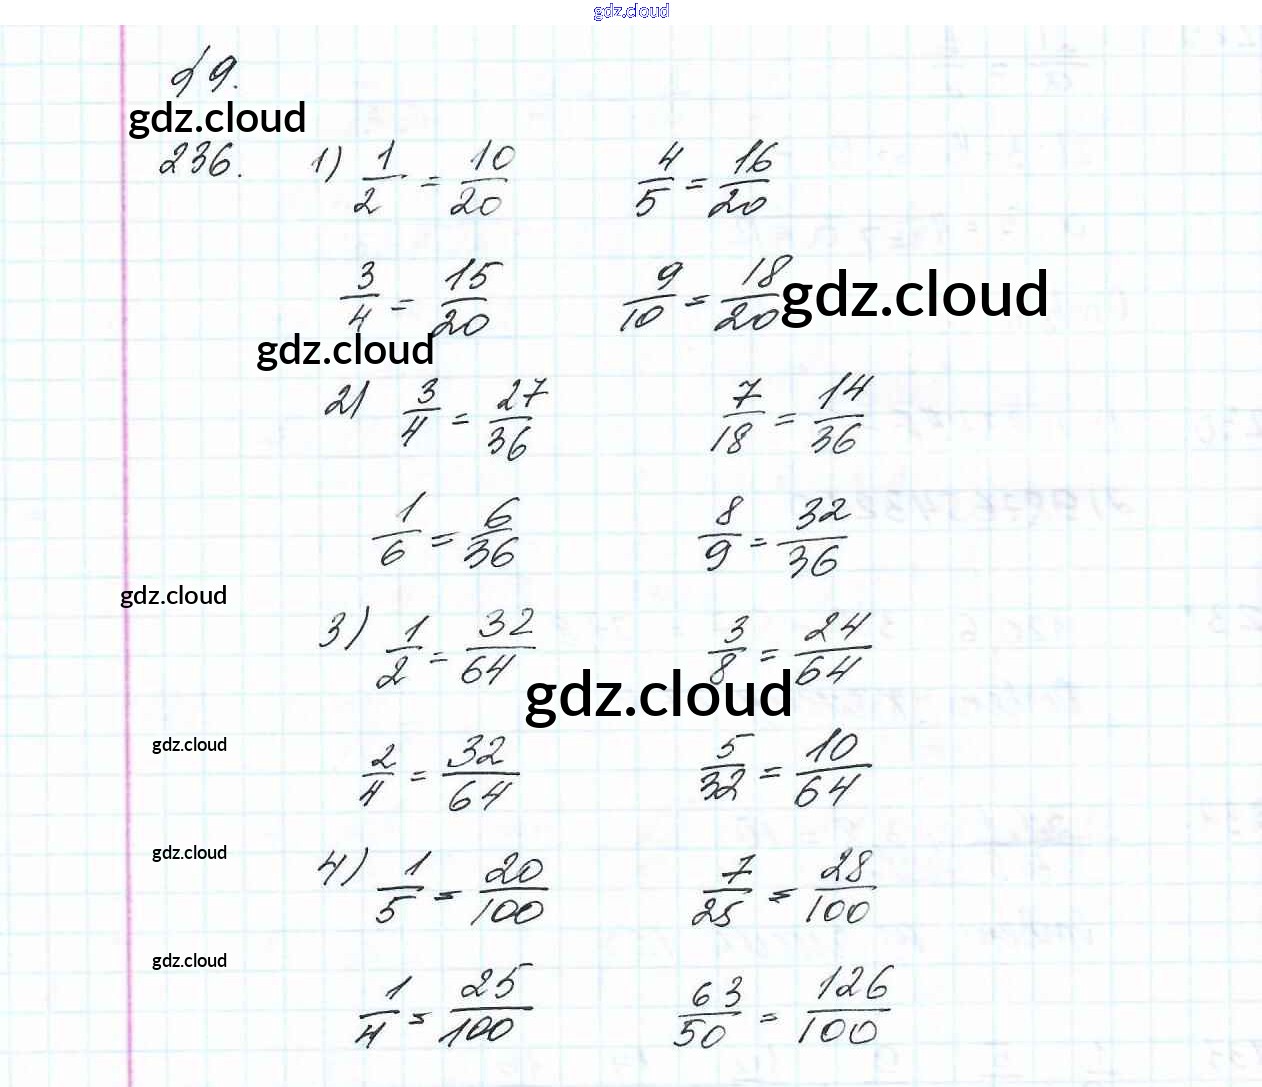 gdz.cloud
§9.
gdz.cloud
236. 1) 1/2 = 10/20 4/5 = 16/20
3/4 = 15/20 9/10 = 18/20 gdz.cloud
gdz.cloud
2) 3/4 = 27/36 7/18 = 14/36
1/6 = 6/36 8/9 = 32/36
gdz.cloud
3) 1/2 = 32/64 3/8 = 24/64
gdz.cloud
gdz.cloud
2/4 = 32/64 5/32 = 10/64
gdz.cloud
4) 1/5 = 20/100 7/25 = 28/100
gdz.cloud
1/4 = 25/100 63/50 = 126/100